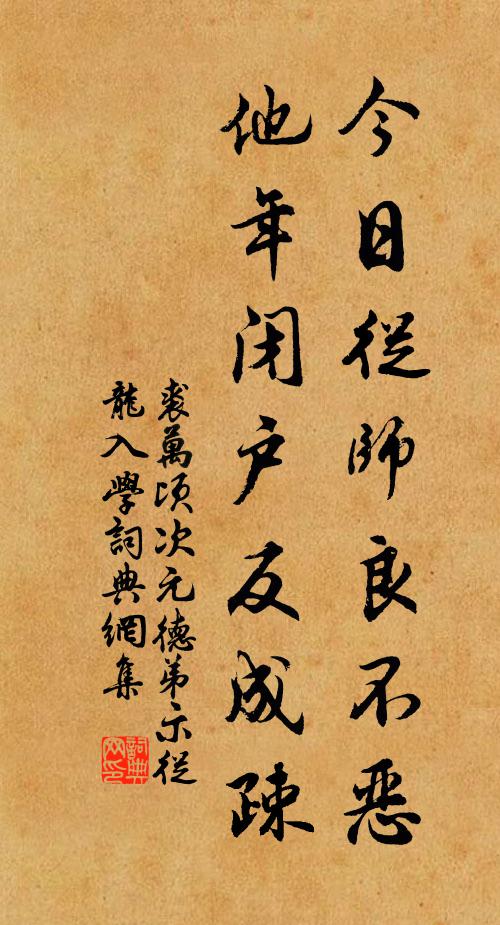 今日從師良不惡
他年閉户反成疎
裘萬頃次元德弟示從
龍入學詞典網集
詞典網印